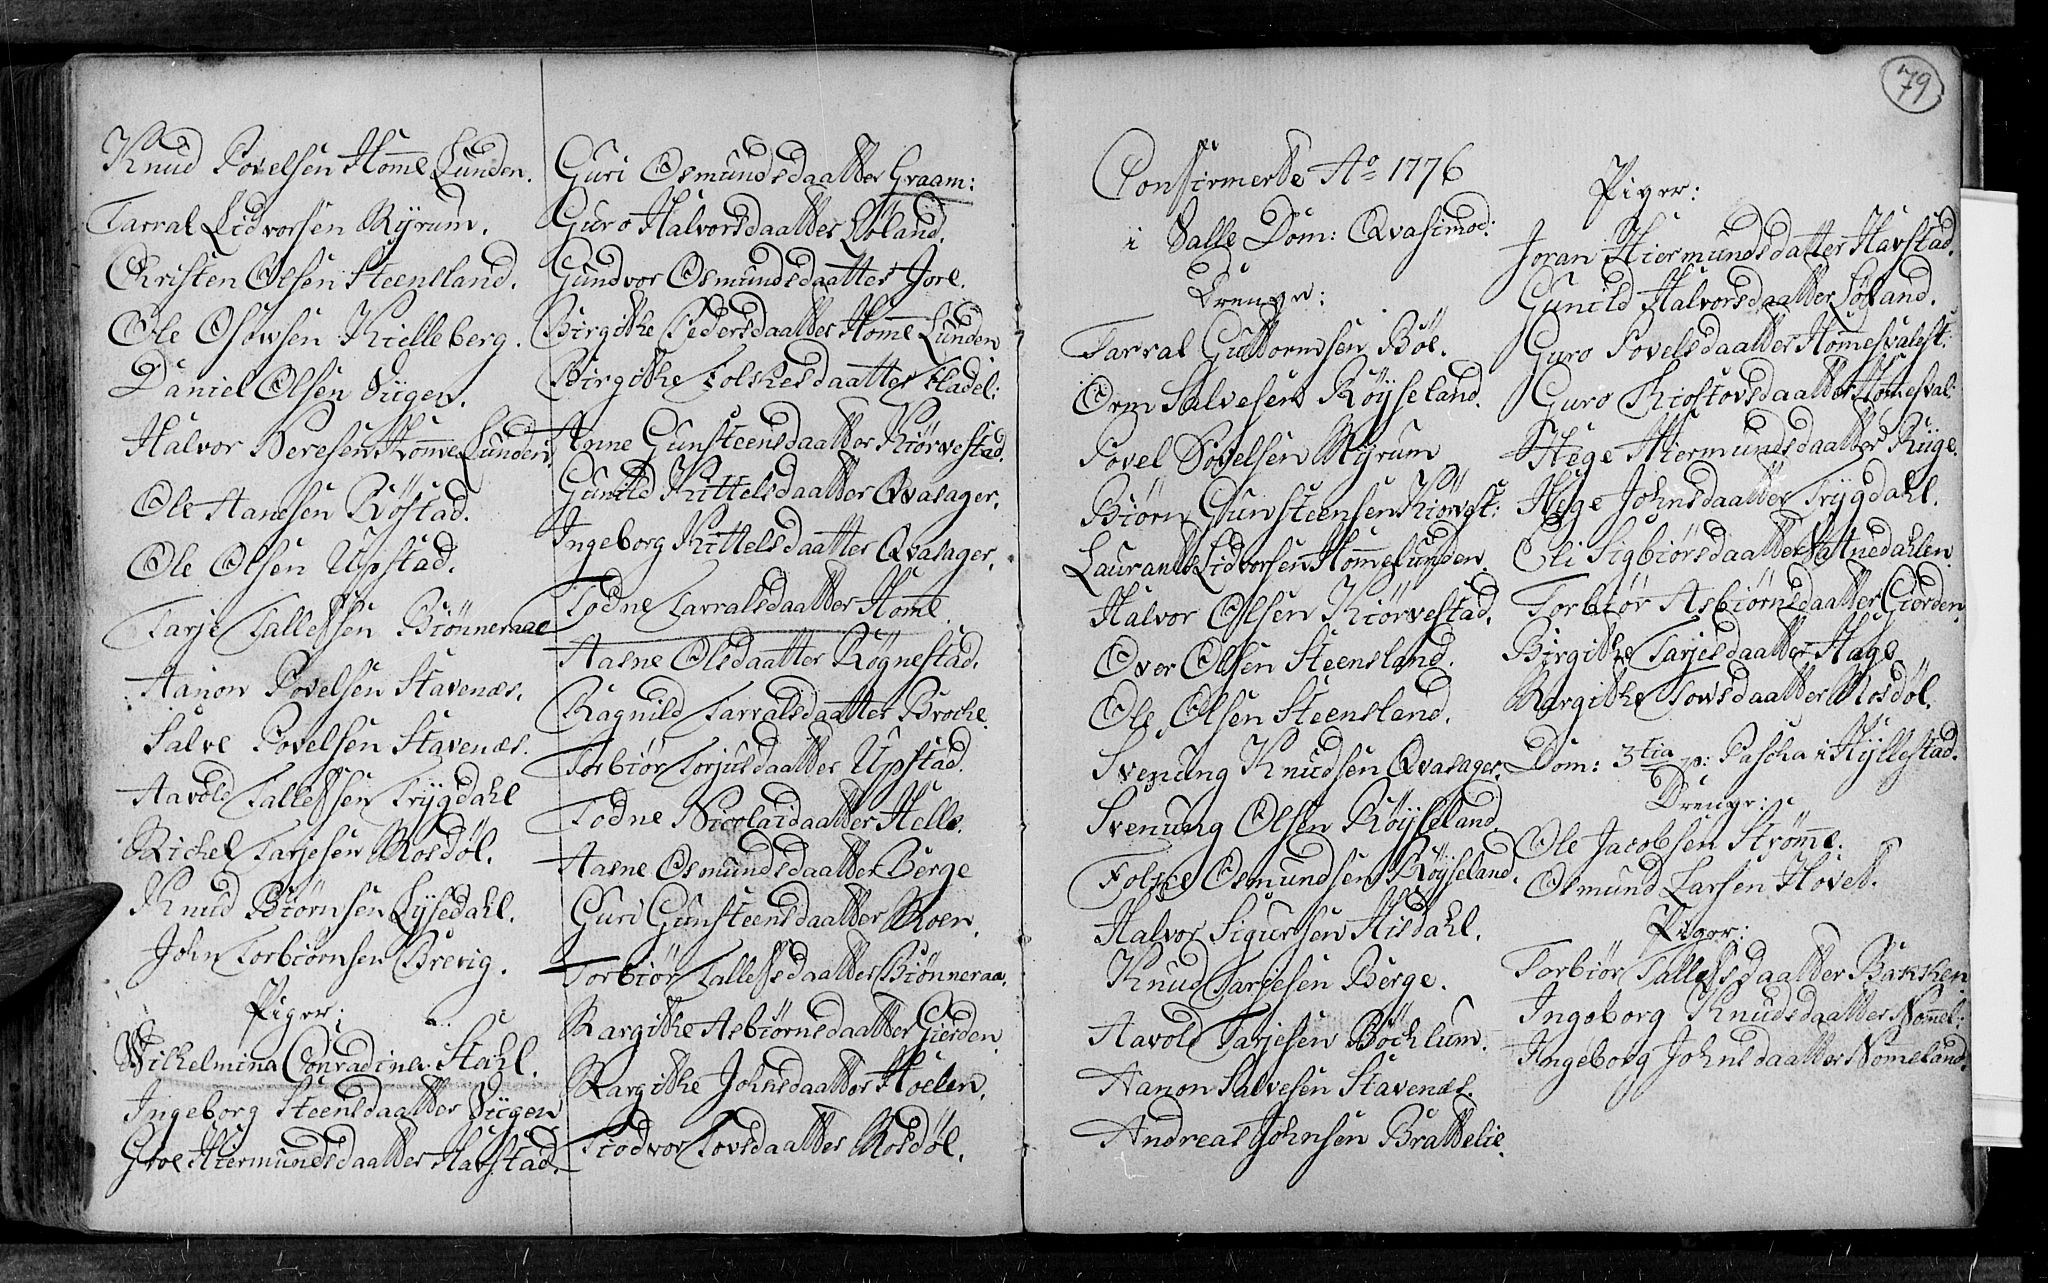 Knud Povelsen Home Lunden.
Tarral Lidvorsen Myrum.
Christen Olsen Steensland.
Ole Osowsen Kielleberg.
Daniel Olsen Viigen.
Halvor Beresen Home Lunden.
Ole Hansen Røstad.
Ole Olsen Upstad.
Tarje Tallefsen Biönneraae
Aanon Povelsen Stavenæs.
Salve Povelsen Stavenæs.
Aavold Tallefsen Trygdahl
Michel Tarjesen Rosdøl.
Knud Biörnsen Lysedahl.
John Torbiörnsen Brevig.
Piger:
Wilhelmina Conradina Stahl.
Ingeborg Steensdaatter Viigen
Groe Hiermundsdaatter Harstad.
Guri Osmundsdaatter Graam:
Guro Halvorsdaatter Løland.
Gundvor Osmundsdaatter Jore.
Birgithe Pedersdaatter Home Lunden
Birgithe Folkesdaatter Fladel:
Anne Gunsteensdaatter Kiørvestad.
Gunild Kittelsdaatter Qvasager.
Ingeborg Kittelsdaatter Qvasager.
Todne Tarralsdaatter Home.
Aasne Olsdaatter Røgnestad.
Ragnild Tarralsdaatter Broche.
Torbiör Torjusdaatter Upstad.
Todne Nicolaidaatter Helle.
Aasne Osmundsdaatter Berge
Guri Gunsteensdaatter Moen.
Torbiör Tallefsdaatter Biönneraa.
Margithe Asbiörnsdaatter Gierden.
Margithe Johnsdaatter Hoelen.
Tiodvor Tovsdaatter Rosdøl.
79
Confirmerte Ao 1776
i Valle Dom: Qvasimod:
Drenge:
Tarral Guttormsen Böe.
Orm Salvesen Røyseland.
Povel Povelsen Myrum
Biörn Gunsteensen Kiörvst:
Laurants Lidvorsen Homelunden.
Halvor Olsen Kiörvestad.
Over Olsen Steensland.
Ole Olsen Steensland.
Svenung Knudsen Qvasager.
Svenung Olsen Røyseland
Folke Osmundsen Røyseland.
Halvor Sigursen Hisdahl.
Knud Tarjesen Berge.
Aavold Tarjesen Böchlum.
Aanon Salvesen Stavenæs.
Andreas Johnsen Brattelie.
Piger:
Joran Hiermundsdatter Harstad.
Gunild Halvorsdaatter Løland.
Guro Povelsdaatter Homesvalest:
Guro Kiostovsdaatter Homesval:
Hege Hiermundsdaatter Rüge.
Hege Johnsdaatter Trygdahl.
Eli Sigbiörsdaatter Vatnedahlen.
Torbiör Asbiörnsdaatter Gierden.
Birgithe Tarjesdaatter Hage
Margithe Towsdaatter Rosdøl.
Dom: 3tia p: Pascha i Hyllestad.
Drenge:
Ole Jacobsen Strøme.
Osmund Larsen Hovet.
Piger:
Torbiör Tallefsdaatter Bakken
Ingeborg Knudsdaatter Nomel:
Ingeborg Johnsdaatter Nomeland.